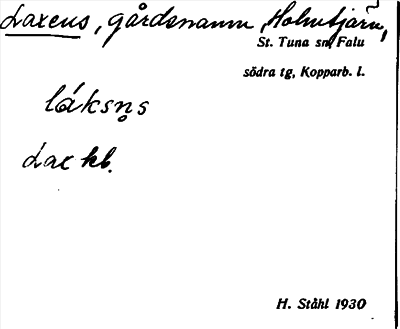 Laxens, gårdsnamn, Holmtjärn,
St. Tuna sn, Falu
södra tg, Kopparb. l.
láksn̥s
Lax hb.
H. Ståhl 1930